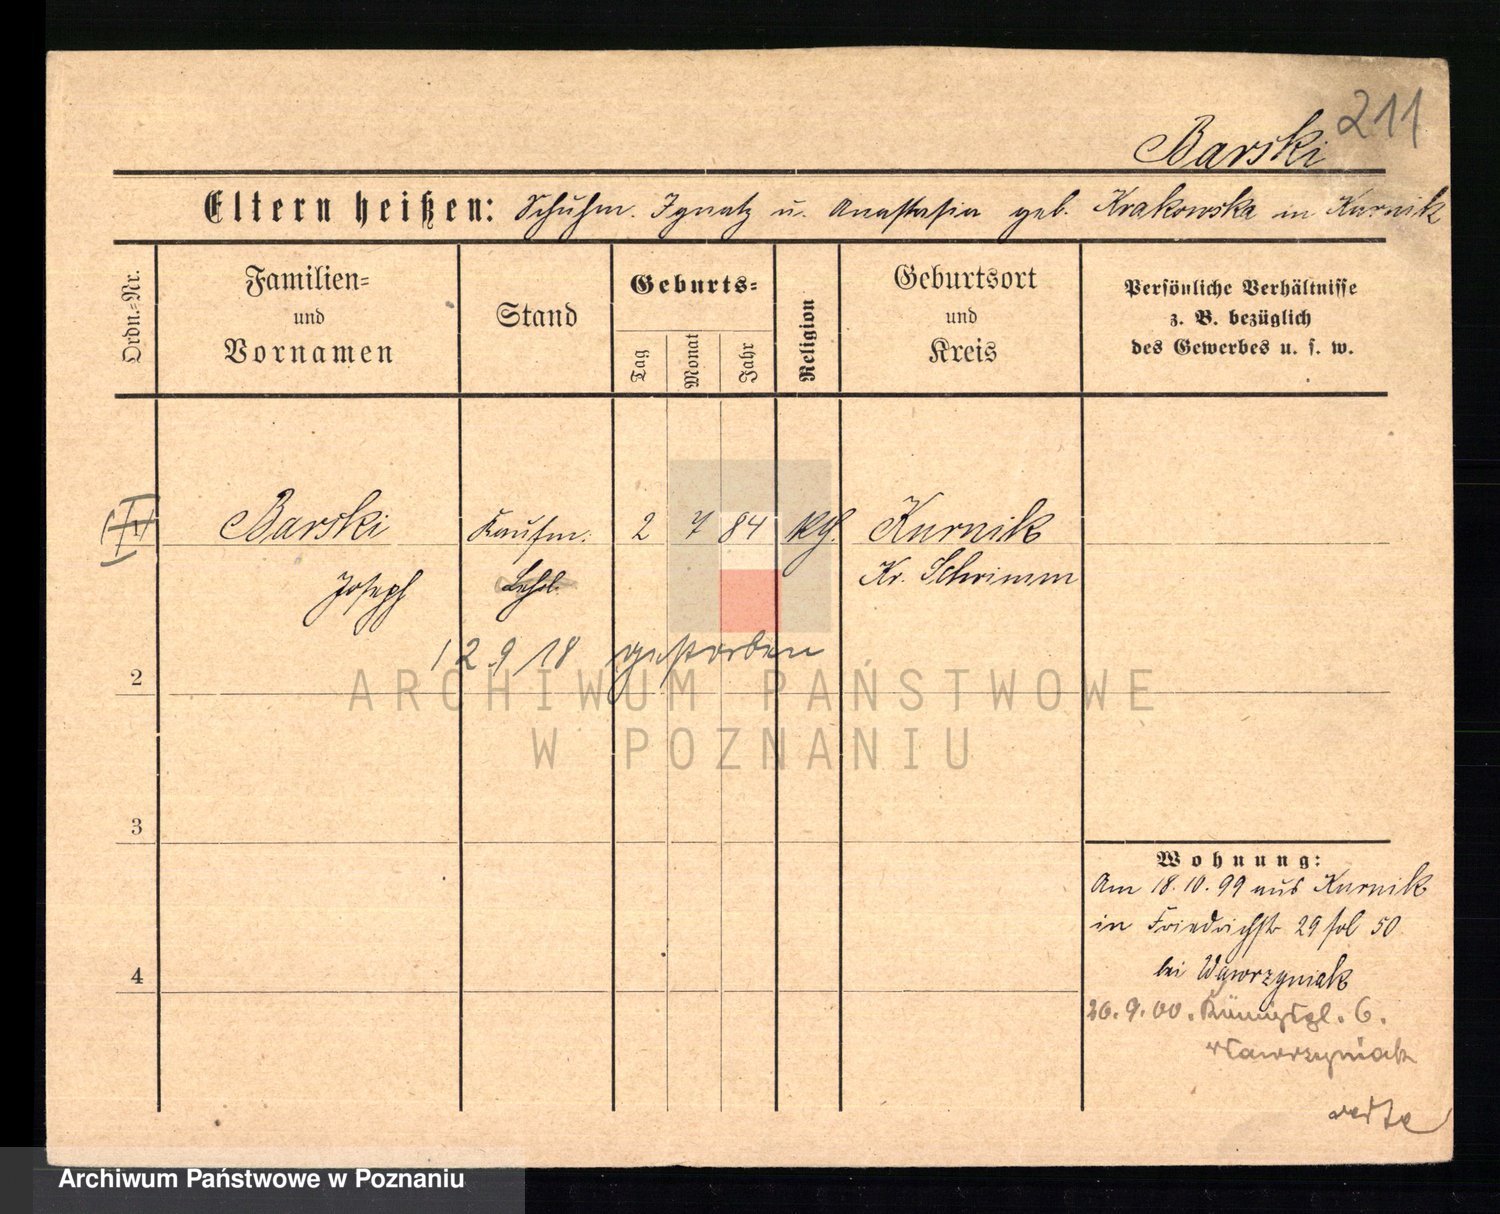 211
Barski
Eltern heißen: Schuhm. Ignatz u. Anastasia geb. Krakowska in Kurnik
Ordn.-Nr.
Familien-
und
Vornamen
Stand
Geburts-
Tag
Monat
Jahr
Religion
Geburtsort
und
Kreis
Persönliche Verhältnisse
z. B. bezüglich
des Gewerbes u. s. w.
Barski Kaufm. 2 7 84 kth. Kurnik
Joseph Lehrl. Kr. Schrimm
12 9 18 gestorben
2
ARCHIWUM PAŃSTWOWE
W POZNANIU
3
4
Wohnung:
Am 18.10.99 aus Kurnik
in Friedrichstr 29 fol 50
bei Wawrzyniak
26.9.00. Königspl. 6.
Wawrzyniak
Archiwum Państwowe w Poznaniu